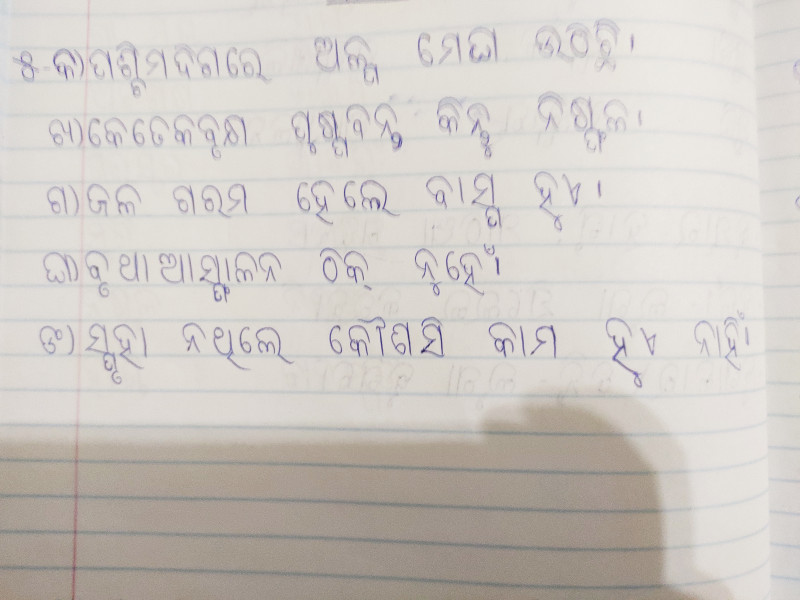 ୫. କ) ପଶ୍ଚିମଦିଗରେ ଅଳ୍ପ ମେଘ ଉଠିଚି।
ଖ) କେତେକବୃକ୍ଷ ପୁଷ୍ପବନ୍ତ କିନ୍ତୁ ନିଷ୍ଫଳ।
ଗ) ଜଳ ଗରମ ହେଲେ ବାସ୍ପ ହୁଏ।
ଘ) ବୃଥା ଆସ୍ଫାଳନ ଠିକ୍ ନୁହେଁ।
ଙ) ସ୍ପୃହା ନଥିଲେ କୌଣସି କାମ ହୁଏ ନାହିଁ।